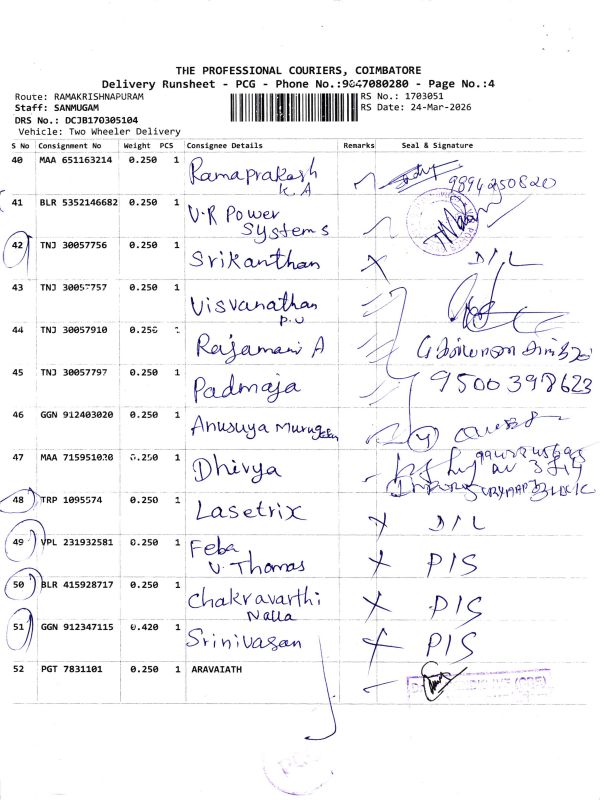 THE PROFESSIONAL COURIERS, COIMBATORE
Delivery Runsheet - PCG - Phone No.:9847080280 - Page No.:4
Route: RAMAKRISHNAPURAM RS No.: 1703051
Staff: SANMUGAM RS Date: 24-Mar-2026
DRS No.: DCJB170305104
Vehicle: Two Wheeler Delivery
S No Consignment No Weight PCS Consignee Details Remarks Seal & Signature
40 MAA 651163214 0.250 1 Ramaprakash
K.A 9894250820
41 BLR 5352146682 0.250 1 V.R Power
Systems
42 TNJ 30057756 0.250 1 Srikanthan X D/L
43 TNJ 30057757 0.250 1 Visvanathan
P.U
44 TNJ 30057910 0.250 Rajamani A
45 TNJ 30057797 0.250 1 Padmaja 9500398623
46 GGN 912403020 0.250 1 Anusuya Murugesan 4
47 MAA 715951020 0.250 1 Dhivya
48 TRP 1095574 0.250 1 Lasetrix X D/L
49 VPL 231932581 0.250 1 Feba
V. Thomas X P/S
50 BLR 415928717 0.250 1 Chakravarthi
Nalla X P/S
51 GGN 912347115 0.420 1 Srinivasan X P/S
52 PGT 7831101 0.250 1 ARAVAIATH